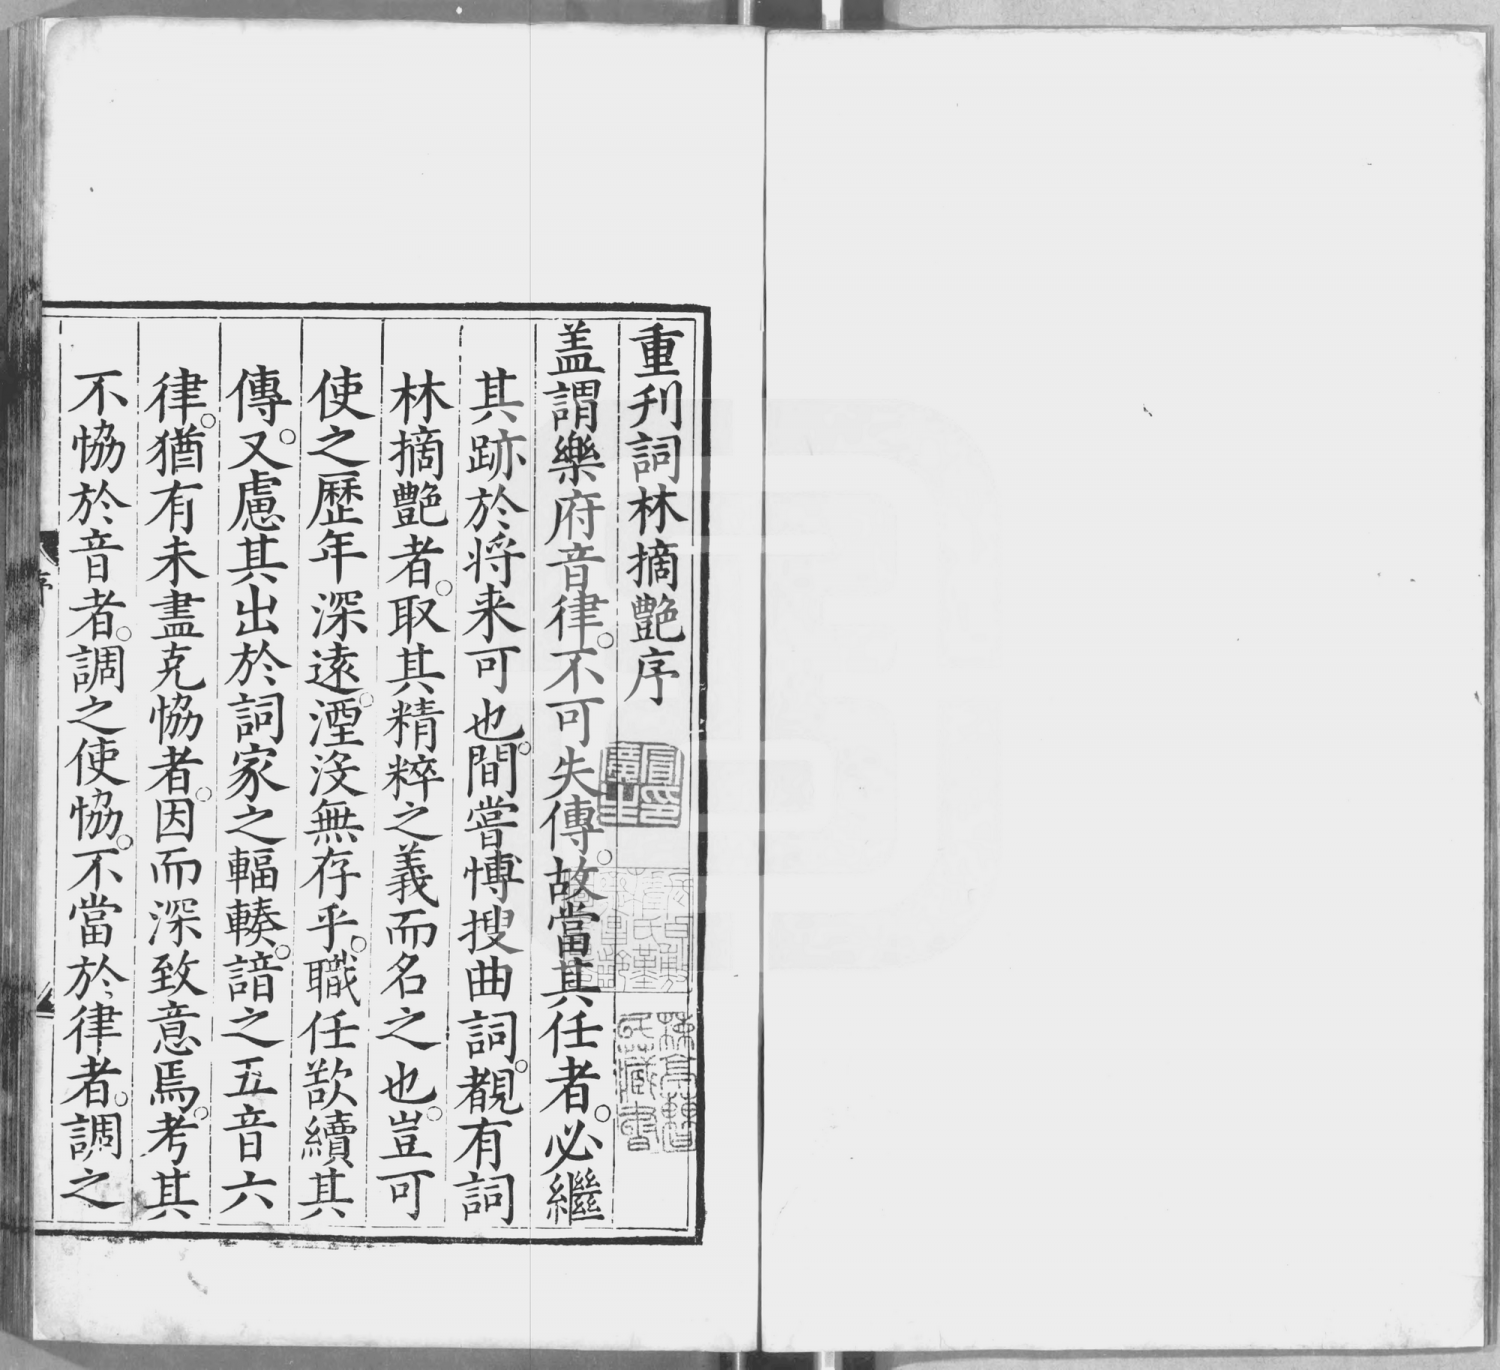 重刋詞林摘艷序
盖謂樂府音律。不可失傳。故當其任者。必繼
其跡於将来可也。間嘗愽搜曲詞。覩有詞
林摘艷者。取其精粹之義而名之也。豈可
使之歷年深遠。湮没無存乎。職任欲續其
傳。又慮其出於詞家之輻輳。諳之五音六
律。猶有未盡克恊者。因而深致意焉。考其
不恊於音者。調之使恊。不當於律者。調之
序